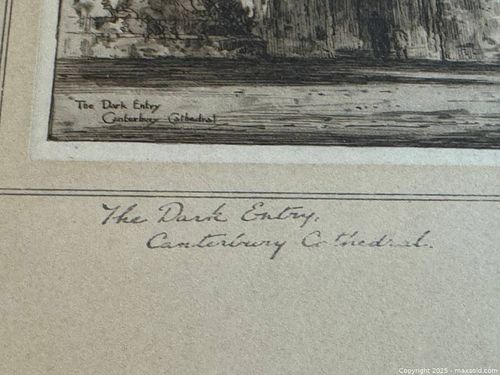 The Dark Entry
Canterbury Cathedral
The Dark Entry.
Canterbury Cathedral.
Copyright 2025 - maxsold.com